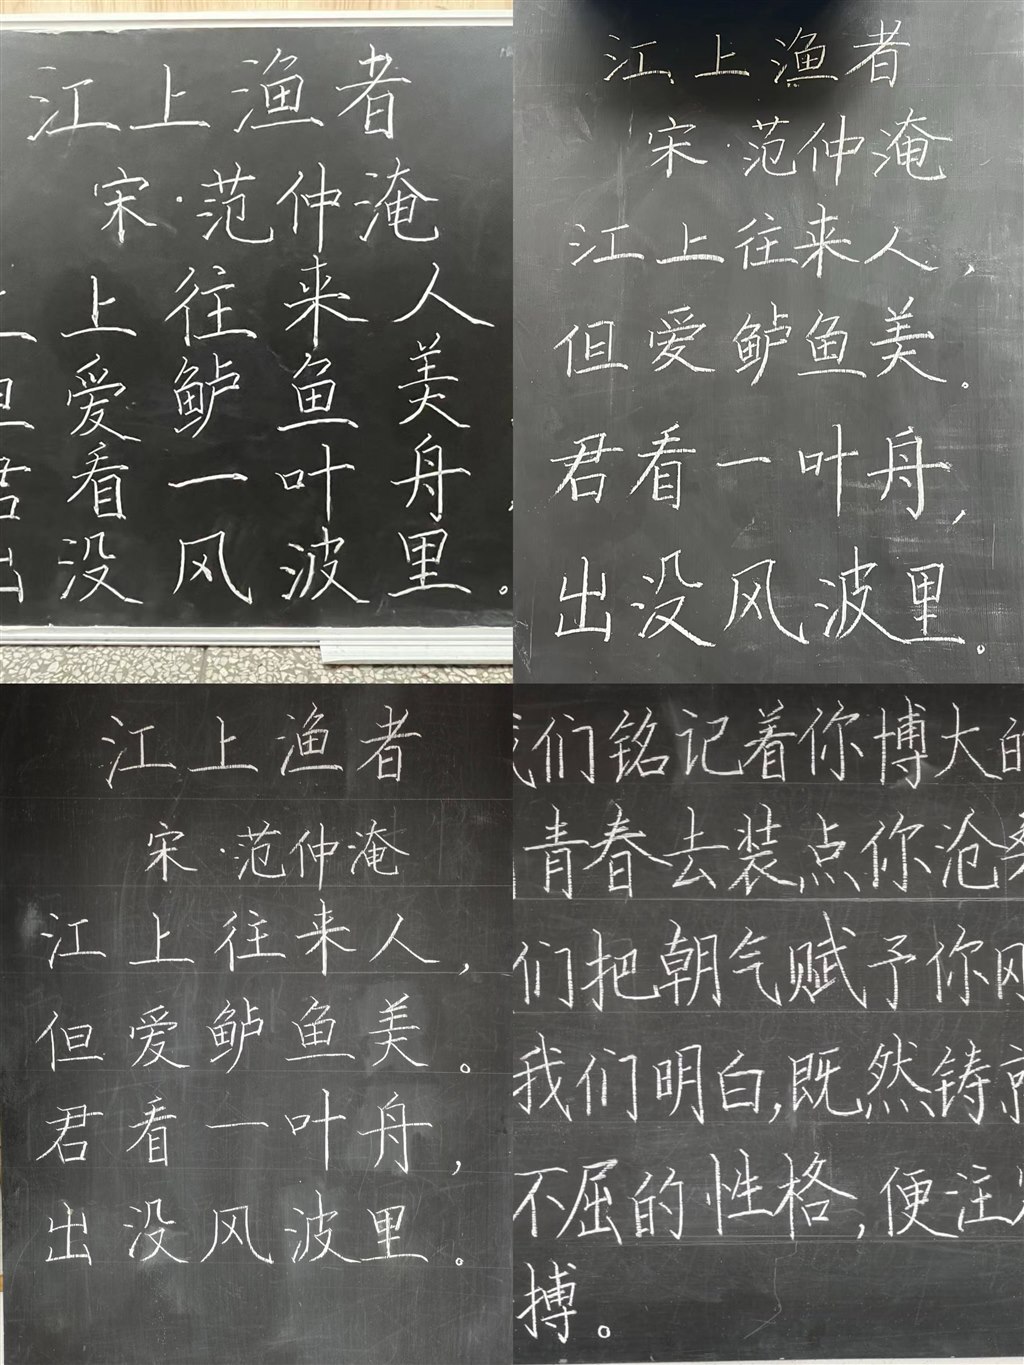 江上渔者
宋·范仲淹
上往来人
爱鲈鱼美
看一叶舟
没风波里。
江上渔者
宋·范仲淹
江上往来人，
但爱鲈鱼美。
君看一叶舟，
出没风波里。
江上渔者
宋·范仲淹
江上往来人，
但爱鲈鱼美。
君看一叶舟，
出没风波里。
们铭记着你博大的
青春去装点你沧桑
们把朝气赋予你刚
我们明白,既然铸就
不屈的性格,便注定
搏。